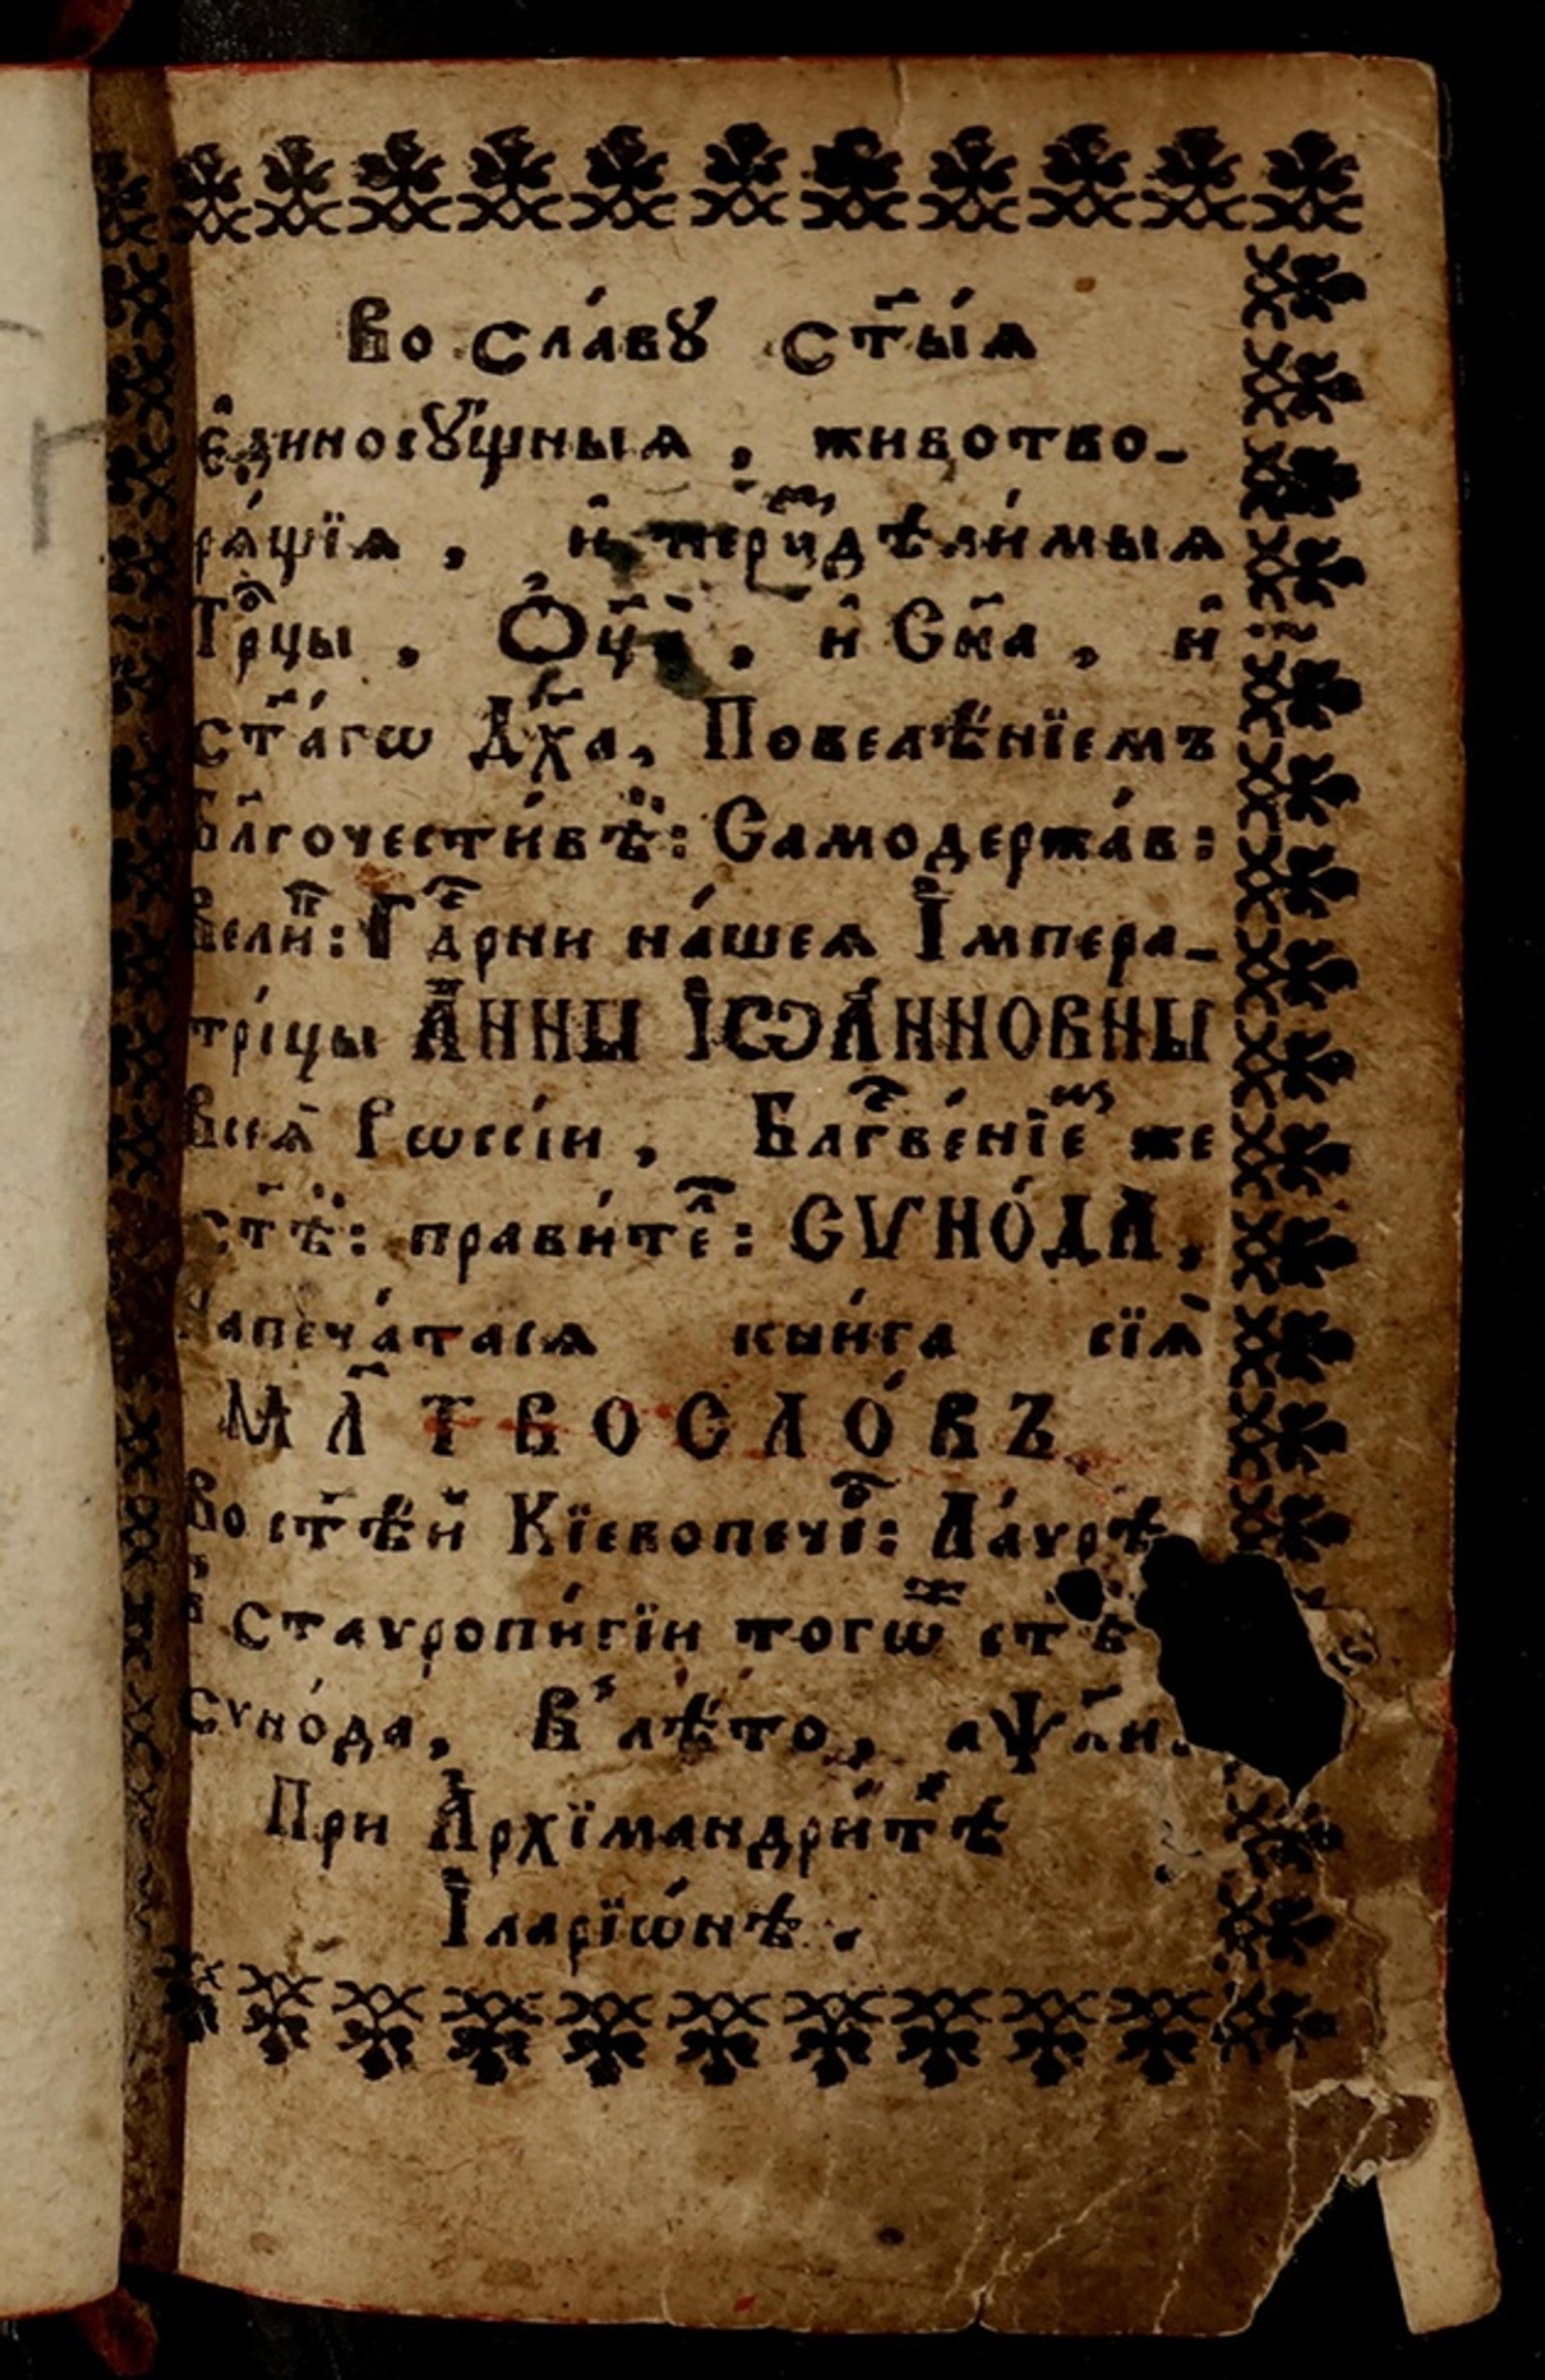 Во сла́вꙋ́ ст҃ы́ѧ
є҆диносꙋ́щныѧ , животво-
рѧ́щїѧ , и҆ нераздѣли́мыѧ
Трⷪ҇цы , Ѻ҆ц҃а̀ , и҆ Сн҃а , и҆
ст҃а́гѡ Дх҃а , Повелѣ́нїемъ
бл҃гочести́вѣ: Самодержа́в:
Велиⷫ: Гдⷭ҇рни на́шеѧ І҆мпера-
трі́цы А҆́ННЫ І҆Ѡ҆А́ННОВНЫ
Всеѧ̀ Рѡссі́и , Блгⷭ҇ве́нїеⷨ же
ст҃ѣ: прави́теⷧ: СѴНО́ДА ,
Напеча́тасѧ кни́га сїѧ̀
МЛ҃ТВОСЛО́ВЪ
Во ст҃ѣ́й Кїевопечеⷬ: Ла́ѵрѣ
в̾ Ставропи́гїи тогѡⷤ ст҃ѣ
Сѵно́да , В̾ лѣ́то , аѱл҃и .
При А҆рхїмандри́тѣ
І҆ларїѡ́нѣ .